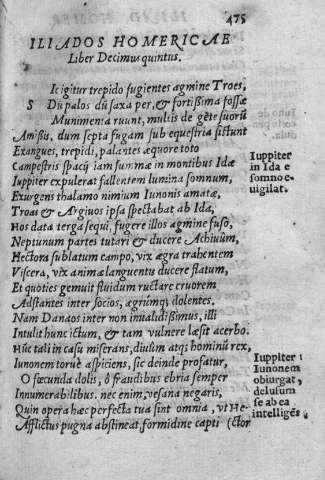 475
ILIADOS HOMERICAE
Liber Decimusquintus.
S Ic igitur trepido fugientes agmine Troes,
Dū palos dū saxa per, & fortißima fossæ
Munimenta ruunt, multis de gēte suorū
Amißis, dum septa fugam sub equestria sistunt
Exangues, trepidi, palantes æquore toto
Campestris spacij iam summæ in montibus Idæ
Iuppiter expulerat fallentem lumina somnum,
Exurgens thalamo nimium Iunonis amatæ,
Troas & Argiuos ipsa spectabat ab Ida,
Hos data terga sequi, fugere illos agmine fuso,
Neptunum partes tutari & ducere Achiuûm,
Hectora sublatum campo, vix ægra trahentem
Viscera, vix animæ languentis ducere flatum,
Et quoties gemuit fluidum ructare cruorem
Adstantes inter socios, ægrúmqs dolentes.
Nam Danaos inter non inualidißimus, illi
Intulit hunc ictum, & tam vulnere læsit acerbo.
Hūc tali in casu miserans, diuûm atqs hominū rex,
Iunonem toruè aspiciens, sic deinde profatur,
O fœcunda dolis, ô fraudibus ebria semper
Innumerabilibus. nec enim, vesana negaris,
Quin opera hæc perfecta tua sint omnia, vt He-
Afflictus pugna abstineat, formidine capti (ctor
Iuppiter
in Ida e
somno e-
uigilat.
Iuppiter
Iunonem
obiurgat,
delusum
se ab ea
intelligēs